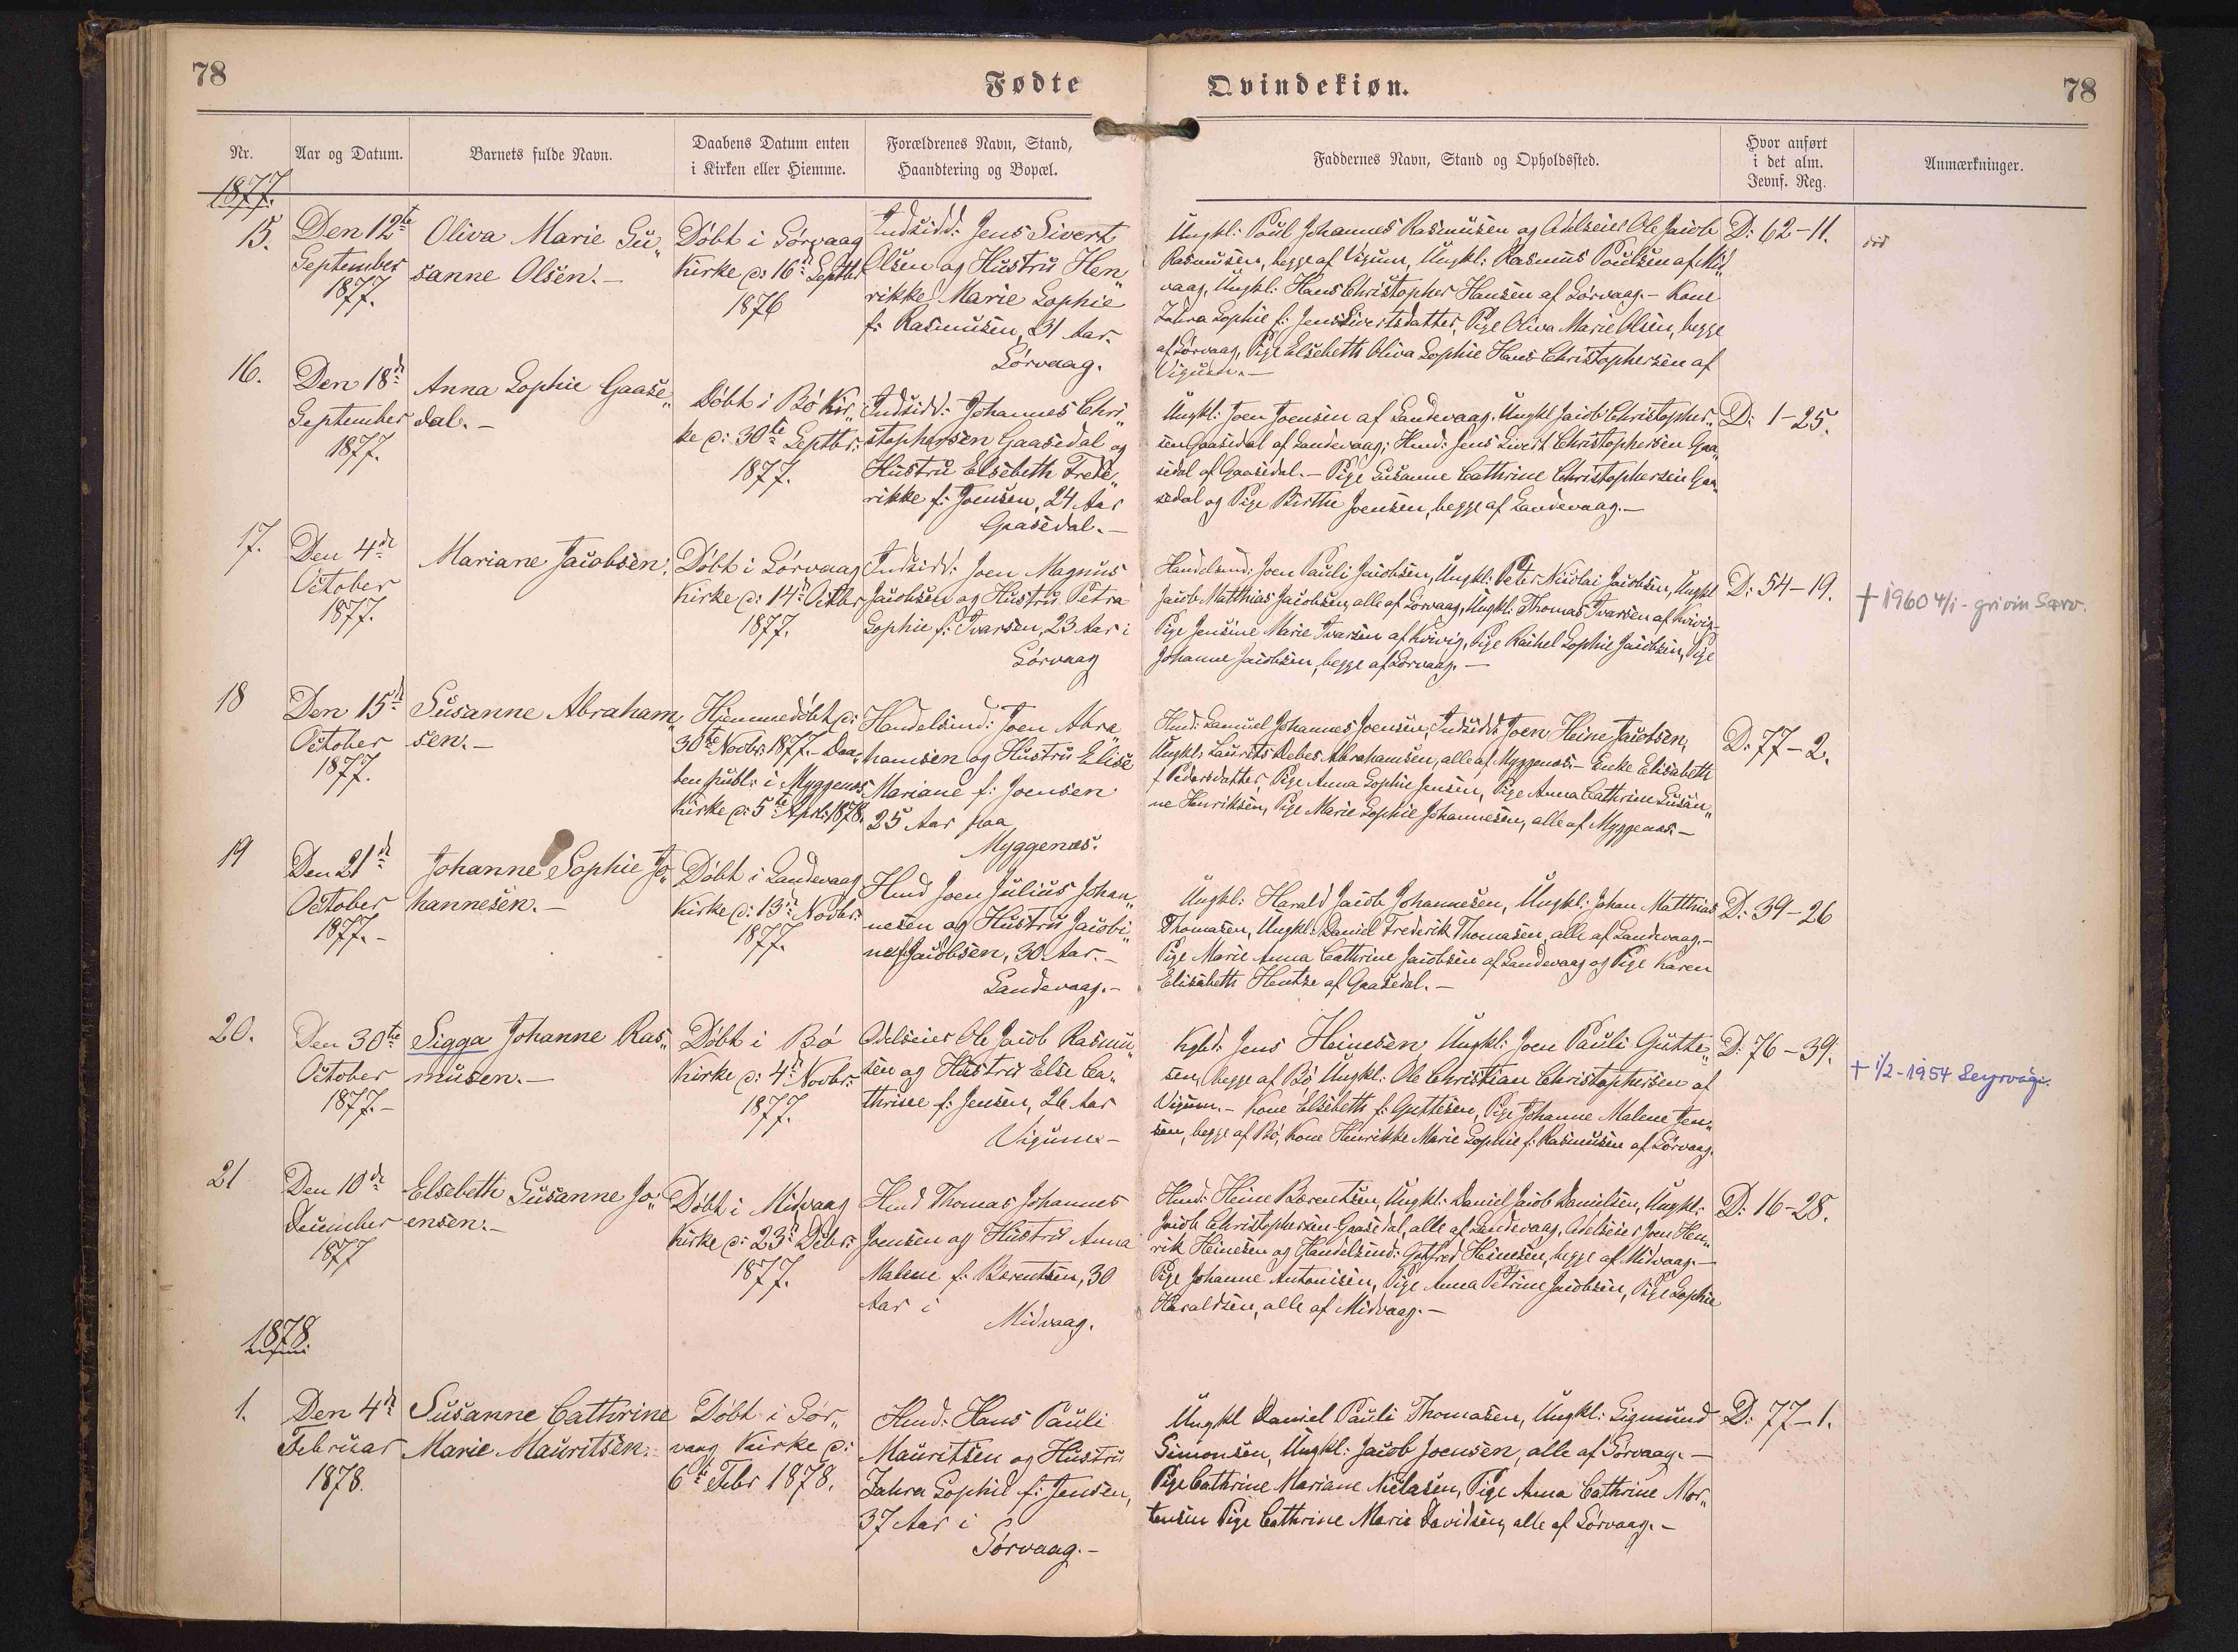 78
Fødte
Nr.
Aar og Datum.
Barnets fulde Navn.
Daabens Datum enten
i Kirken eller Hiemme.
Forældrenes Navn, Stand,
Haandtering og Bopæl.
1877.
15.
Den 12te
September
1877.
Oliva Marie Su„
sanne Olsen.-
Döbt i Sörvaag
Kirke d: 16d Septbr
1876
Indsidd: Jens Sivert
Olsen og Hustru Hen„
rikke Marie Sophie
f: Rasmusen, 31 Aar.
Sörvaag.
16.
Den 18d
September
1877.
Anna Sophie Gaase„
dal.-
Döbt i Bö Kir„
ke d: 30te Septbr:
1877.
Indsidd: Johannes Chri„
stophersen Gaasedal og
Hustru Elsebeth Frede„
rikke f: Joensen, 24 Aar
Gaasedal.-
17.
Den 4de
October
1877.
Mariane Jacobsen.
Döbt i Sörvaag
Kirke d: 14d Octbr
1877.
Indsidd: Joen Magnus
Jacobsen og Hustru Petra
Sophie f: Ivarsen, 23 Aar i
Sörvaag
18
Den 15d
October
1877.
Susanne Abraham„
sen.-
Hjemmedöbt d:
30te Novbr: 1877.- Daa„
ben publ: i Myggenæs
Kirke d: 5te Apr: 1878.
Handelsmd: Joen Abra„
hamsen og Hustru Elise
Mariane f: Joensen
25 Aar paa
Myggenæs.
19
Den 21d
October
1877.-
Johanne Sophie Jo„
hannesen.-
Döbt i Sandevaag
Kirke d: 13d Novbr:
1877.
Hmd Joen Julius Johan„
nesen og Hustru Jacobi„
ne f: Jacobsen, 30 Aar.-
Sandevaag.-
20.
Den 30te
October
1877.-
Sigga Johanne Ras„
musen.-
Döbt i Bö
Kirke d: 4d Novbr:
1877.
Odelseier Ole Jacob Rasmu„
sen og Hustru Else Ca„
thrine f: Jensen, 26 Aar
Vigum.-
21
Den 10de
December
1877
Elsebeth Susanne Jo„
ensen.-
Döbt i Midvaag
Kirke d: 23d Debr:
1877.
Hmd Thomas Johannes
Joensen og Hustru Anna
Malene f: Berentsen, 30
Aar i
Midvaag.
1878
1.
Den 4d
Februar
1878.
Susanne Cathrine
Marie Mauritsen.
Döbt i Sör„
vaag Kirke d:
6te Febr 1878.
Hmd: Hans Pauli
Mauritsen og Hustru
Zahra Sophie f: Jensen,
37 Aar i
Sörvaag.-
Qvindekiøn.
78
Faddernes Navn, Stand og Opholdssted.
Hvor anført
i det alm.
Jevnf. Reg.
Anmærkninger.
Ungkl: Poul Johannes Rasmusen og Odelseier Ole Jacob
Rasmusen, begge af Vigum, Ungkl: Rasmus Poulsen af Mid„
vaag, Ungkl: Hans Christopher Hansen af Sörvaag.- Kone
Zahra Sophie f: Jens Sivertsdatter, Pige Oliva Marie Olsen, begge
af Sörvaag, Pige Elsebeth Oliva Sophie Hans Christophersen af
Vigum.-
D: 62-11.
Ungkl: Joen Joensen af Sandevaag, Ungkl Jacob Christopher„
sen Gaasedal af Sandevaag, Hmd: Jens Sivert Christophersen Gaa„
sedal af Gaasedal.- Pige Susanne Cathrine Christophersen Gaa„
sedal og Pige Birthe Joensen, begge af Sandevaag.-
D: 1-25.
Handelsmd: Joen Pauli Jacobsen, Ungkl: Peter Nicolai Jacobsen, Ungkl
Jacob Matthias Jacobsen, alle af Sörvaag, Ungkl: Thomas Ivarsen af Kvivig-
Pige Jensine Marie Ivarsen af Kvivig, Pige Rachel Sophie Jacobsen, Pige
Johanne Jacobsen, begge af Sörvaag.-
D: 54-19.
† 1960 4/1 - grivin Sørv.
Hmd: Samuel Johannes Joensen, Indsidd: Joen Heine Jacobsen,
Ungkl: Laurits Debes Abrahamsen, alle af Myggenæs.- Enke Elisabeth
f Pedersdatter, Pige Anna Sophie Jensen, Pige Anna Cathrine Susan„
ne Henriksen, Pige Marie Sophie Johannesen, alle af Myggenæs.-
D: 77-2.
Ungkl: Harald Jacob Johannesen, Ungkl: Johan Matthias
Thomasen, Ungkl: Daniel Frederik Thomasen, alle af Sandevaag.-
Pige Marie Anna Cathrine Jacobsen af Sandevaag og Pige Karen
Elisabeth Hentze af Gaasedal.-
D: 39-26
Kgbd: Jens Heinesen Ungkl: Joen Pauli Gutte„
sen, begge af Bö, Ungkl: Ole Christian Christophersen af
Vigum.- Kone Elsebeth f: Guttesen, Pige Johanne Malene Jen„
sen, begge af Bö, Kone Henrikke Marie Sophie f: Rasmusen af Sörvaag.
D: 76-39.
† 1/2-1954 Seyrvági.
Hmd: Heine Berentsen, Ungkl: Daniel Jacob Danielsen, Ungkl:
Jacob Christophersen Gaasedal, alle af Sandevaag, Odelseier Joen Hen„
rik Heinesen og Handelsmd: Gotfred Heinesen, begge af Midvaag.-
Pige Johanne Antonisen, Pige Anna Petrine Jacobsen, Pige Sophie
Haraldsen, alle af Midvaag.-
D: 16-28.
Ungkl Daniel Pauli Thomasen, Ungkl: Sigmund
Simonsen, Ungkl: Jacob Joensen, alle af Sörvaag.-
Pige Cathrine Mariane Niclasen, Pige Anna Cathrine Mor„
tensen Pige Cathrine Marie Davidsen, alle af Sörvaag.-
D: 77-1.